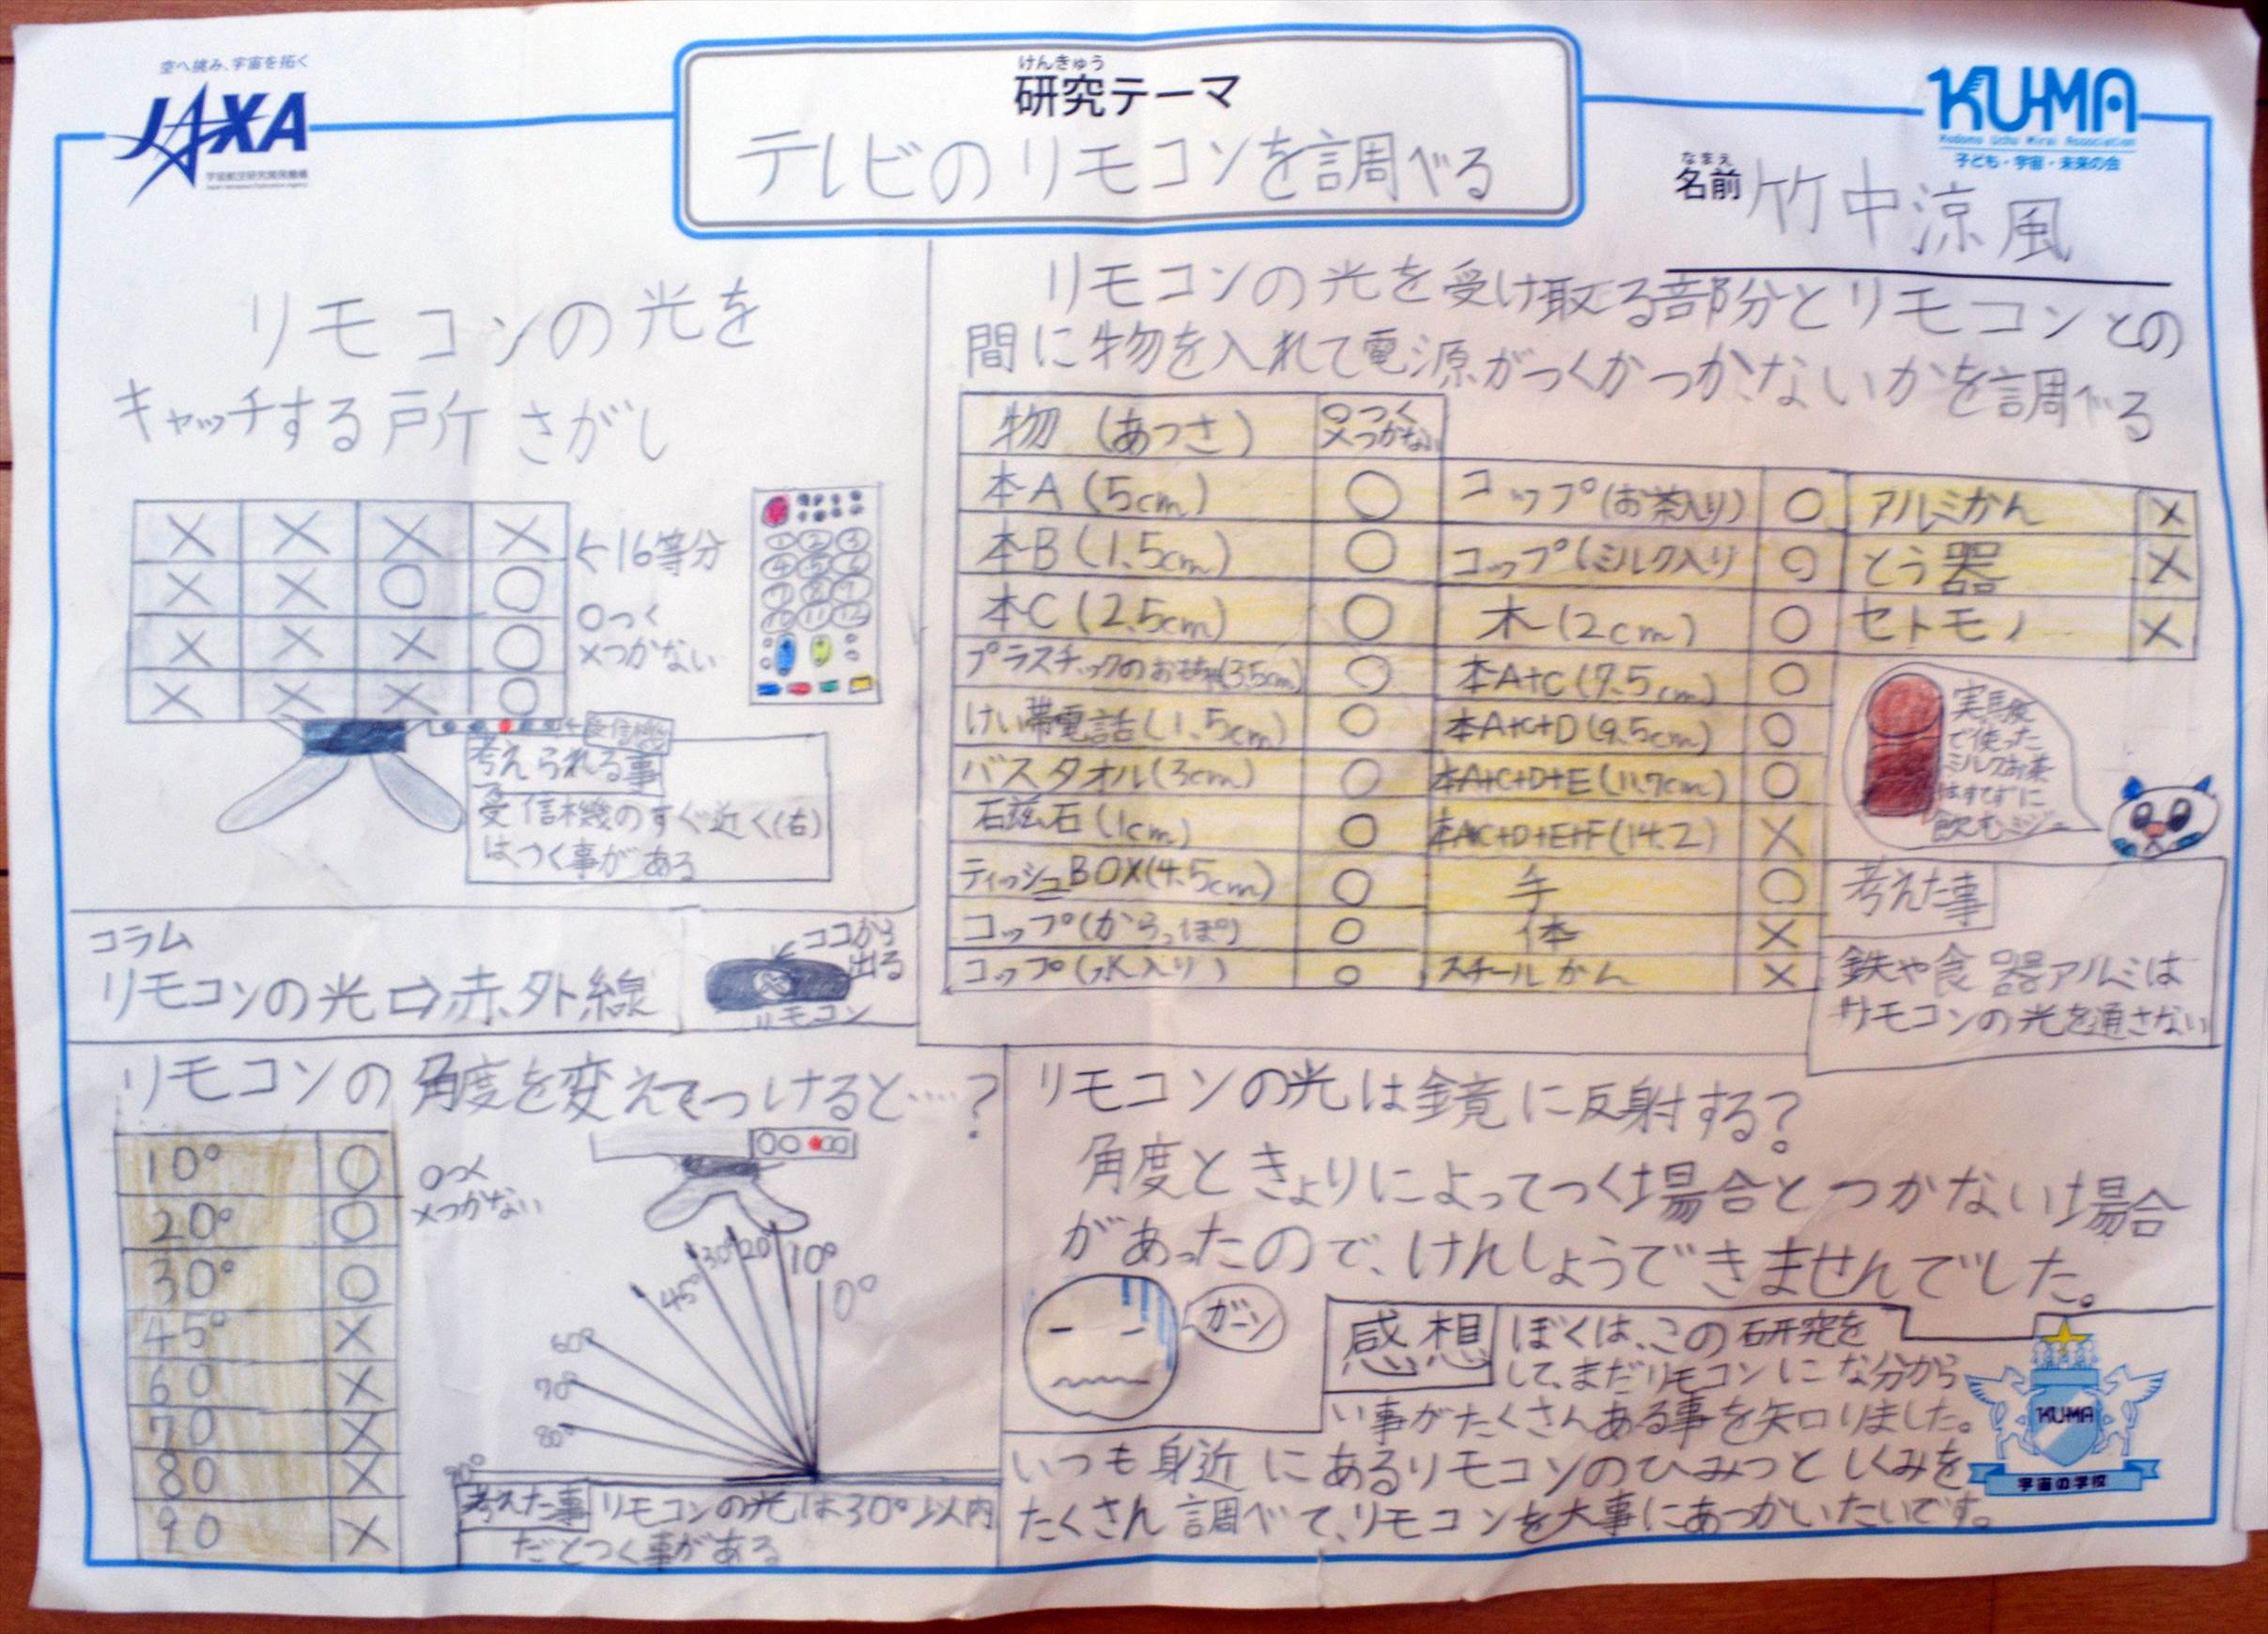 空へ挑み、宇宙を拓く
JAXA
宇宙航空研究開発機構
Japan Aerospace Exploration Agency
けんきゅう
研究テーマ
テレビのリモコンを調べる
KU-MA
Kodomo Uchu Mirai Association
子ども・宇宙・未来の会
なまえ
名前 竹中涼風
リモコンの光を
キャッチする所さがし
× × × ×
× × ○ ○
× × × ○
× × × ○
←16等分
○つく
×つかない
① ② ③
④ ⑤ ⑥
⑦ ⑧ ⑨
⑩ ⑪ ⑫
←受信機
考えられる事
受信機のすぐ近く(右)
はつく事がある
コラム
リモコンの光⇨赤外線
ココから
出る
リモコン
リモコンの光を受け取る部分とリモコンとの
間に物を入れて電源がつくかつかないかを調べる
物 (あつさ) ○つく ×つかない
本A (5cm) ○
本B (1.5cm) ○
本C (2.5cm) ○
プラスチックのおもちゃ(3.5cm) ○
けい帯電話 (1.5cm) ○
バスタオル(3cm) ○
石磁石 (1cm) ○
ティッシュBOX(4.5cm) ○
コップ(からっぽ) ○
コップ(水入り) ○
コップ(お茶入り) ○
コップ(ミルク入り ○
木 (2cm) ○
本A+C (7.5cm) ○
本A+C+D (9.5cm) ○
本A+C+D+E (11.7cm) ○
本A+C+D+E+F (14.2) ×
手 ○
体 ×
スチールかん ×
アルミかん ×
とう器 ×
セトモノ ×
実験
で使った
ミルクお茶
はすてずに
飲む
考えた事
鉄や食器アルミは
リモコンの光を通さない
リモコンの角度を変えてつけると……?
10° ○
20° ○
30° ○
45° ×
60 ×
70 ×
80 ×
90 ×
○つく
×つかない
0°
10°
20°
30°
45°
60°
70°
80°
90°
考えた事 リモコンの光は30°以内
だとつく事がある
リモコンの光は鏡に反射する?
角度ときょりによってつく場合とつかない場合
があったので、けんしょうできませんでした。
ガーン
感想 ぼくは、この研究を
して、まだリモコンにな分から
い事がたくさんある事を知りました。
いつも身近にあるリモコンのひみつとしくみを
たくさん調べて、リモコンを大事にあつかいたいです。
KU-MA
宇宙の学校